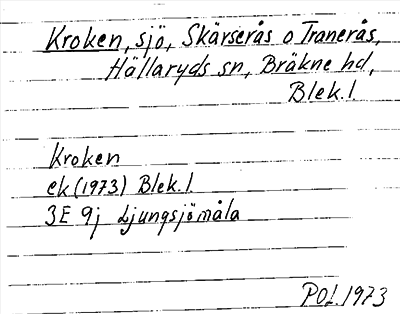 Kroken, sjö, Skärserås o Tranerås,
Hällaryds sn, Bräkne hd,
Blek. l.
Kroken
ek (1973) Blek. l
3E 9j Ljungsjömåla
POL. 1973